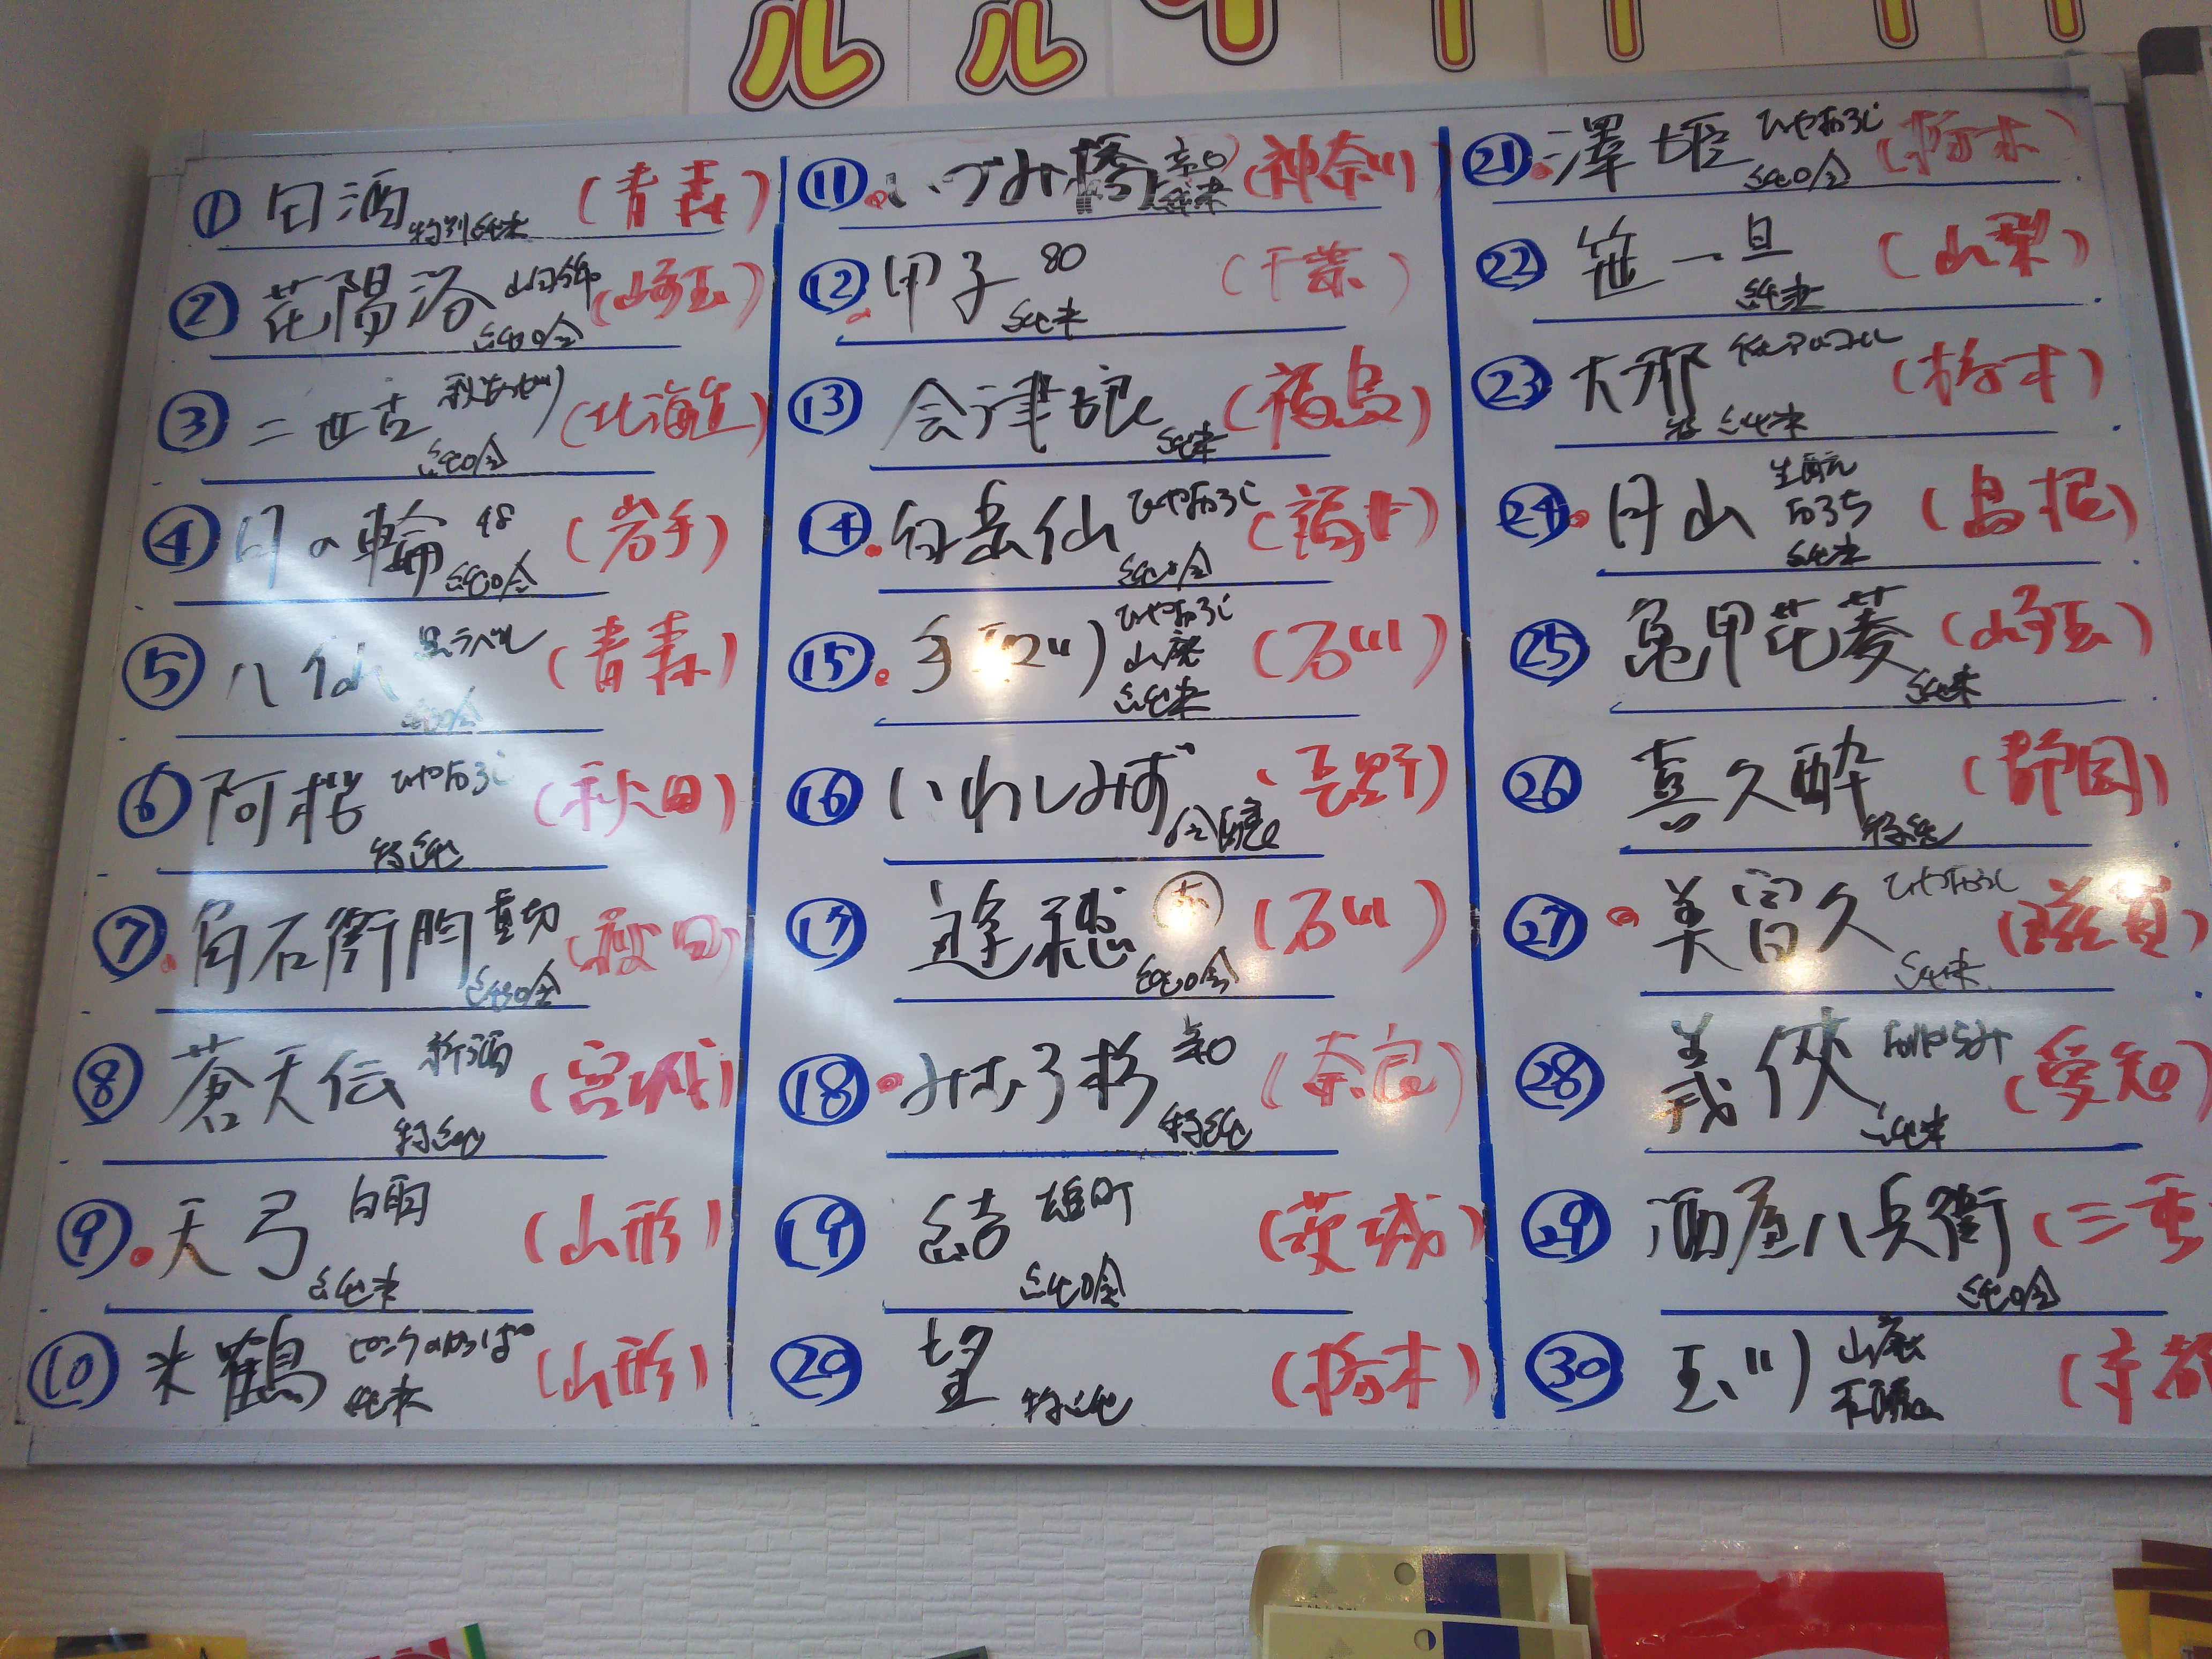 ① 田酒 特別純米 (青森)
② 花陽浴 山田錦 純吟 (埼玉)
③ 二世古 純吟 (北海道)
④ 月の輪 48 純吟 (岩手)
⑤ 八仙 黒ラベル 純吟 (青森)
⑥ 阿桜 ひやおろし 特純 (秋田)
⑦ 角右衛門 純吟 (秋田)
⑧ 蒼天伝 新酒 特純 (宮城)
⑨ 天弓 白雨 純米 (山形)
⑩ 米鶴 純米 (山形)
⑪ いづみ橋 純米 (神奈川)
⑫ 甲子 80 純米 (千葉)
⑬ 会津娘 純米 (福島)
⑭ 白岳仙 ひやおろし 純吟 (福井)
⑮ 手取川 ひやおろし 山廃 純米 (石川)
⑯ いわしみず (長野)
⑰ 逢穂 赤 純吟 (石川)
⑱ みむろ杉 特純 (奈良)
⑲ 結 雄町 純吟 (茨城)
⑳ 望 特純 (栃木)
㉑ 澤姫 ひやおろし 純吟 (栃木)
㉒ 笹一 旦 純米 (山梨)
㉓ 大那 特純米 (栃木)
㉔ 月山 生酛 純米 (島根)
㉕ 亀甲花菱 純米 (埼玉)
㉖ 喜久酔 特純 (静岡)
㉗ 美冨久 ひやおろし 純米 (滋賀)
㉘ 義侠 純米 (愛知)
㉙ 酒屋八兵衛 純吟 (三重
㉚ 玉川 山廃 (京都